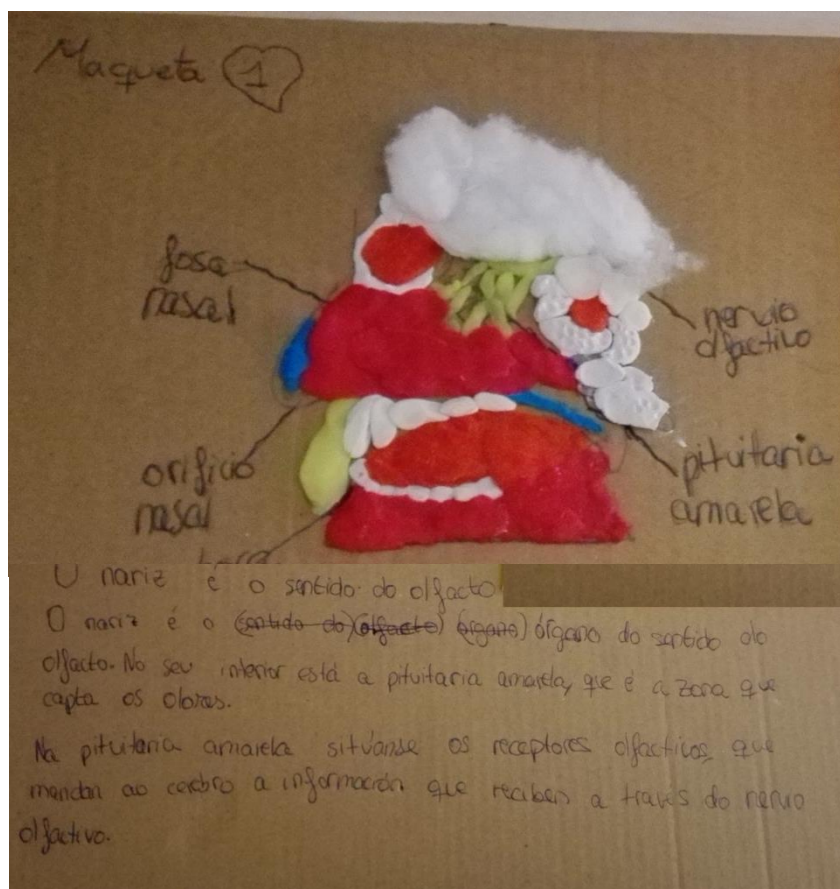 Maqueta 1
fosa
nasal
nervio
olfactivo
orificio
nasal
pituitaria
amarela
O nariz é o sentido do olfacto
O nariz é o (sentido do) (olfacto) (órgano) órgano do sentido do
olfacto. No seu interior está a pituitaria amarela, que é a zona que
capta os olores.
Na pituitaria amarela sitúanse os receptores olfactivos, que
mandan ao cerebro a información que reciben a través do nervio
olfactivo.